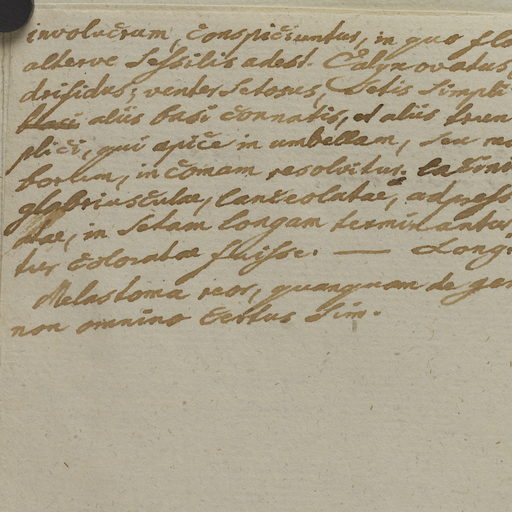 involucrum, conspiciuntur, in quo flo
alterve sessilis adest. Calyx ovatus,
drifidus; venter setosus, setis simpli
aliis basi connatis, et aliis trun
plici, qui apice in umbellam, seu
borum, in comam resolvitur. Lacini
glabriusculae, lanceolatae, adpress
tae, in setam longam terminantur,
tur coloratae fuisse. — Long
Melastoma reor, quanquam de gen
non omnino certus sim.